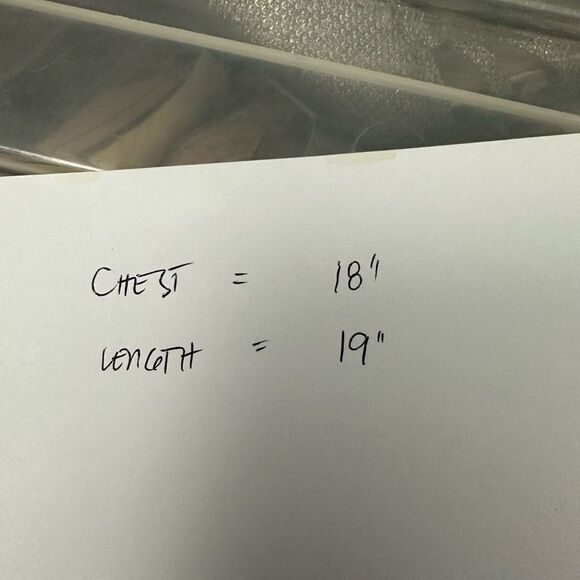 CHEST = 18"
LENGTH = 19"